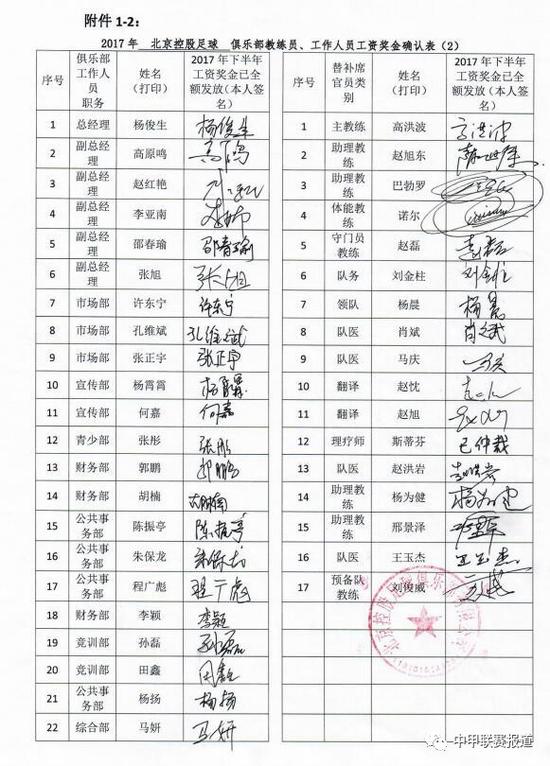 附件1-2：
2017年 北京控股足球 俱乐部教练员、工作人员工资奖金确认表（2）
序号 俱乐部工作人员职务 姓名（打印） 2017年下半年工资奖金已全额发放（本人签名）
1 总经理 杨俊生 杨俊生
2 副总经理 高原鸣
3 副总经理 赵红艳
4 副总经理 李亚南
5 副总经理 邵春瑜 邵春瑜
6 副总经理 张旭 张旭
7 市场部 许东宁 许东宁
8 市场部 孔维斌 孔维斌
9 市场部 张正宇 张正宇
10 宣传部 杨霄霄
11 宣传部 何嘉 何嘉
12 青少部 张彤 张彤
13 财务部 郭鹏 郭鹏
14 财务部 胡楠 胡楠
15 公共事务部 陈振亭 陈振亭
16 公共事务部 朱保龙 朱保龙
17 公共事务部 程广彪 程广彪
18 财务部 李颖 李颖
19 竞训部 孙磊 孙磊
20 竞训部 田鑫 田鑫
21 公共事务部 杨扬 杨扬
22 综合部 马妍 马妍
序号 替补席官员类别 姓名（打印） 2017年下半年工资奖金已全额发放（本人签名）
1 主教练 高洪波 高洪波
2 助理教练 赵旭东
3 助理教练 巴勃罗
4 体能教练 诺尔
5 守门员教练 赵磊 赵磊
6 队务 刘金柱 刘金柱
7 领队 杨晨 杨晨
8 队医 肖斌 肖斌
9 队医 马庆
10 翻译 赵忱
11 翻译 赵旭
12 理疗师 斯蒂芬 已仲裁
13 队医 赵洪岩
14 助理教练 杨为健 杨为健
15 助理教练 邢景泽
16 队医 王玉杰 王玉杰
17 预备队教练 刘俊威
中甲联赛报道